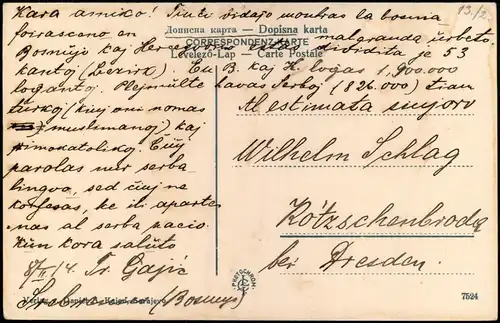 Kara amiko! Tiuĉi vidaĵo montras la bosnia
foirascano en
malgranda urbeto.
Bosnujo kaj Herce
dividita je 53
kanto (Bezirk). En B. kaj H. loĝas 1,900.000
loĝantoj. Plejmulte havas Serboj (826.000) tian
turkoj (kiuj oni nomas
muslimanoj) kaj
rimokatolikoj. Ĉiuj
parolas nur serba
lingvo, sed ĉiuj ne
konfesas, ke ili aparte
nas al serba nacio.
Kun kora saluto
8/II 14. Tr. Gajić
(Bosnujo)
13./2.
Дописна карта — Dopisna karta
CORRESPONDENZ-KARTE
Levelező-Lap — Carte Postale
Al estimata sinjoro
Wilhelm Schlag
Kötzschenbroda
bei Dresden.
PHOTOCHROM
7524